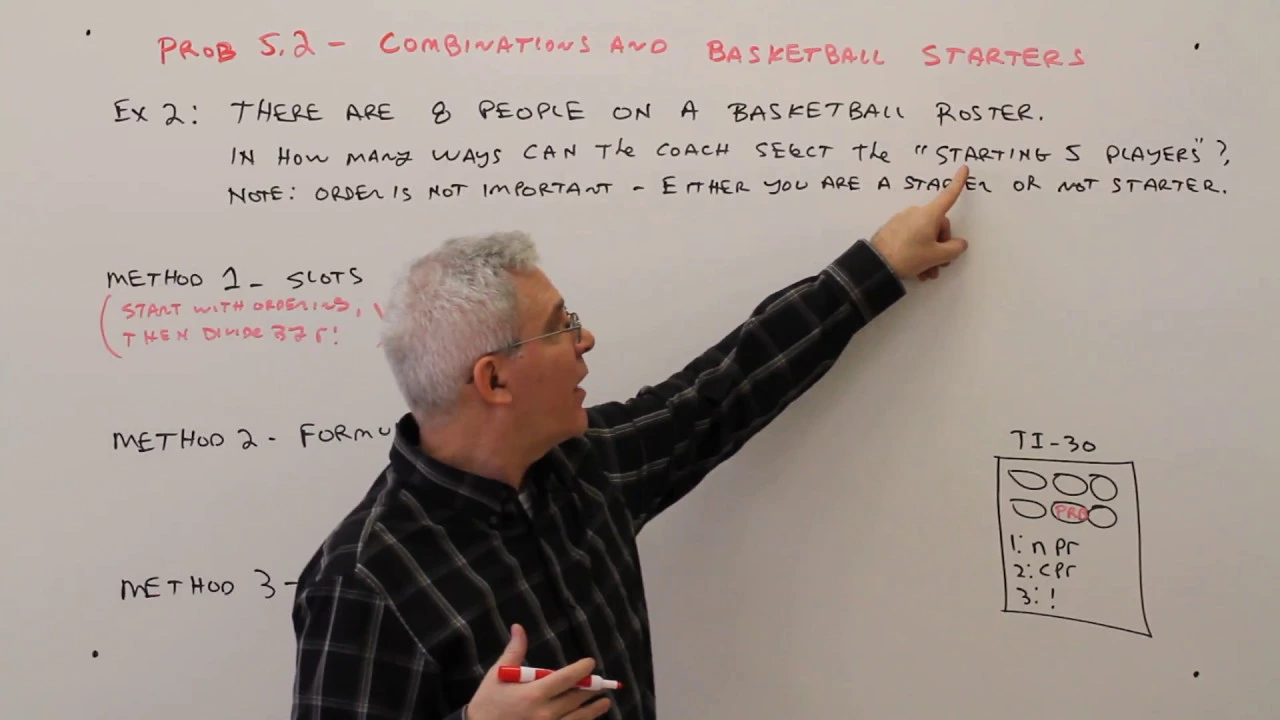 PROB 5.2 - COMBINATIONS AND BASKETBALL STARTERS
EX 2: THERE ARE 8 PEOPLE ON A BASKETBALL ROSTER.
IN HOW MANY WAYS CAN THE COACH SELECT THE "STARTING 5 PLAYERS"?
NOTE: ORDER IS NOT IMPORTANT - EITHER YOU ARE A STARTER OR NOT STARTER.
METHOD 1 - SLOTS
(START WITH ORDERING,
THEN DIVIDE BY r!
METHOD 2 - FORMU
METHOD 3 -
TI-30
PRB
1: n pr
2: cpr
3: !